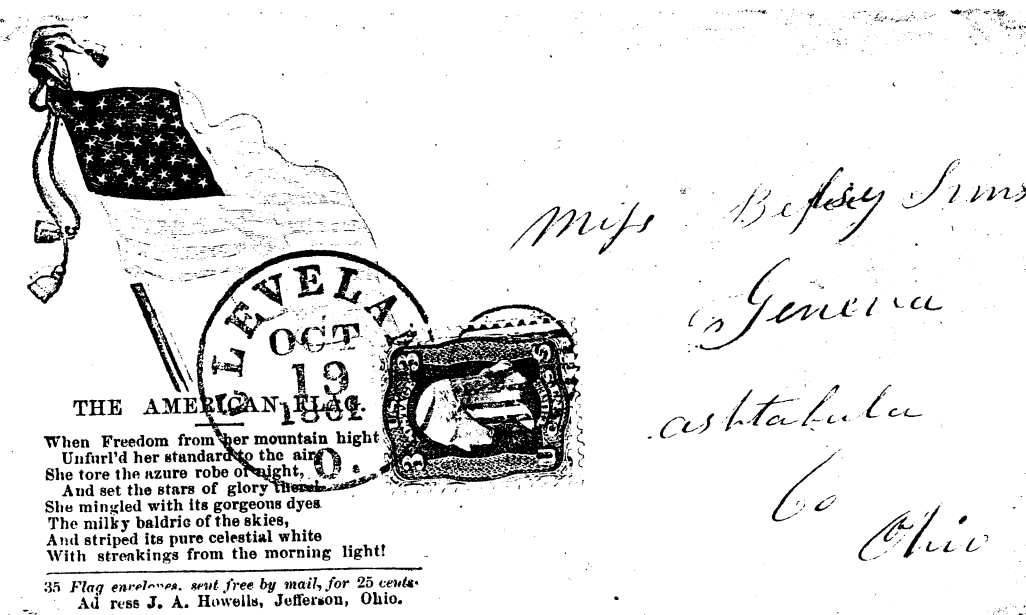 CLEVELA
OCT
19
1861
O.
THE AMERICAN FLAG.
When Freedom from her mountain hight
Unfurl'd her standard to the air,
She tore the azure robe of night,
And set the stars of glory there!
She mingled with its gorgeous dyes
The milky baldric of the skies,
And striped its pure celestial white
With streakings from the morning light!
35 Flag envelopes, sent free by mail, for 25 cents.
Ad ress J. A. Howells, Jefferson, Ohio.
Miss Betsey Sims
Geneva
ashtabula
Co
Ohio